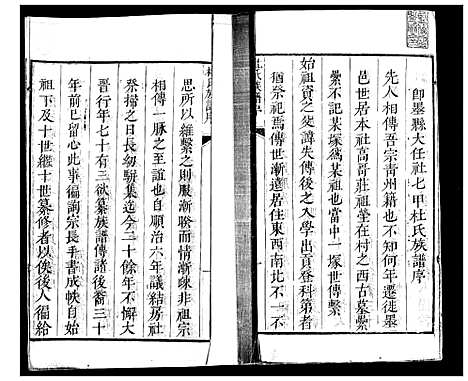 即墨縣大任社七甲杜氏族譜序
先人相傳吾宗青州籍也不何年遷徙墨
邑世居本社高哥莊祖塋在村之西古墓纍
纍不記某塚爲某祖也當中一塚世傳繫
始祖貢之父諱失傳後之入學出貢登科名
猶祭祀焉傳世漸遠居住東西南北不一不
思所以維繫之則服漸盡而情漸疎非祖宗
相傳一脉之至意也自順治六年議結房社
祭掃之日長幼駢集迄今二十餘年不懈大
晉行年七十有三欲纂族譜傳諸後裔三十
年前已留心此事徧詢宗長手書成帙自始
祖下及十世繼十世纂修者以俟後人徧給